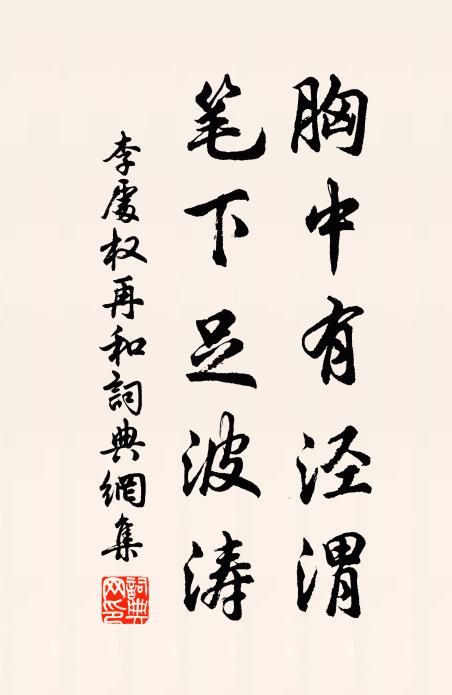 胸中有泾渭
笔下足波涛
李處权再和詞典網集
詞典网印